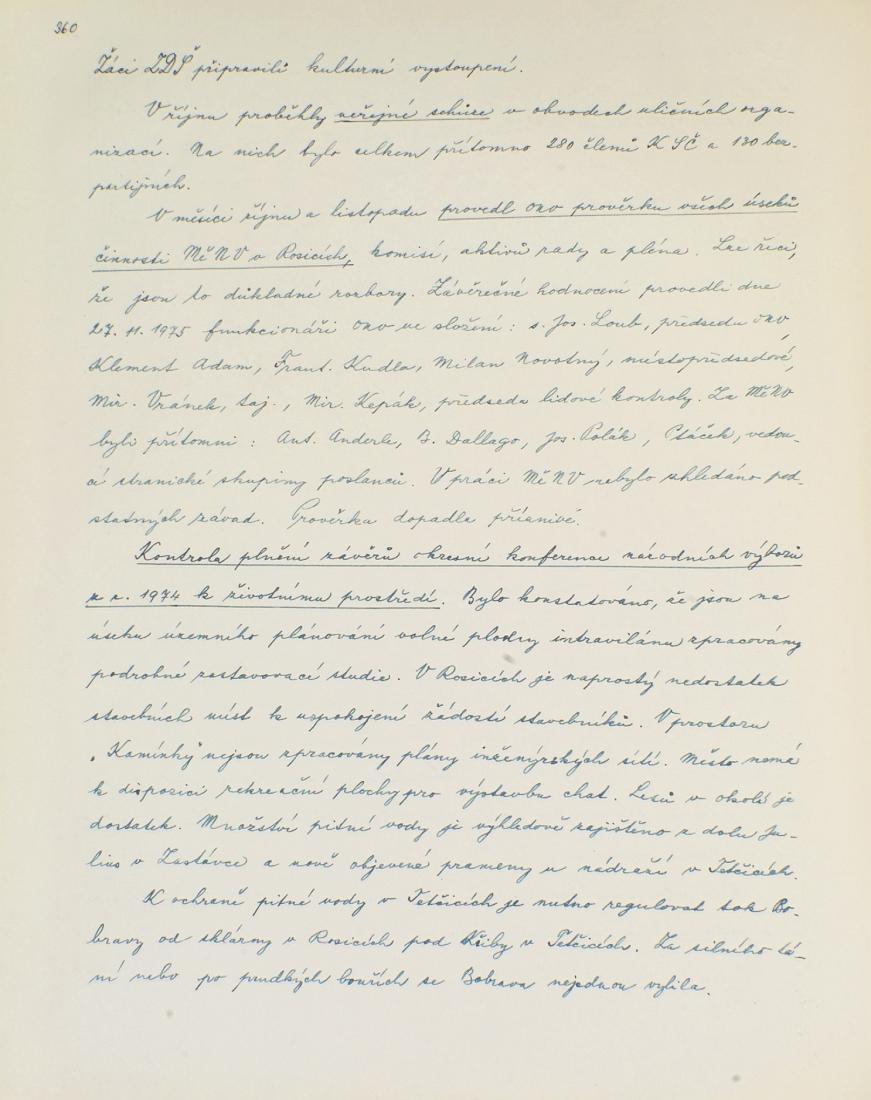 360
Žáci ZDŠ připravili kulturní vystoupení.
V říjnu proběhly veřejné schůze v obvodech uličních orga-
nizací. Na nich bylo celkem přítomno 280 členů KSČ a 130 bez-
partijních.
V měsíci říjnu a listopadu provedl ONV prověrku všech úseků
činnosti MěNV v Rosicích, komisí, aktivů rady a pléna. Lze říci,
že jsou to důkladné rozbory. Závěrečné hodnocení provedli dne
27. 11. 1975 funkcionáři ONV ve složení: s. Jos. Loub, předseda ONV,
Klement Adam, Frant. Kudla, Milan Novotný, místopředsedové,
Mir. Vránek, taj., Mir. Kepák, předseda lidové kontroly. Za MěNV
byli přítomni: Ant. Anderle, B. Dallago, Jos. Polák, Ptáček, vedou-
cí stranické skupiny poslanců. V práci MěNV nebylo shledáno pod-
statných závad. Prověrka dopadla příznivě.
Kontrola plnění závěrů okresní konference národních výborů
z r. 1974 k životnímu prostředí. Bylo konstatováno, že jsou na
úseku územního plánování volné plochy intravilánu zpracovány
podrobné zastavovací studie. V Rosicích je naprostý nedostatek
stavebních míst k uspokojení žádostí stavebníků. V prostoru
„Kamínky" nejsou zpracovány plány inženýrských sítí. Město nemá
k dispozici rekreační plochy pro výstavbu chat. Lesů v okolí je
dostatek. Množství pitné vody je výhledově zajištěno z dolu Ju-
lius v Zastávce a nově objevené prameny u nádraží v Tetčicích.
K ochraně pitné vody v Tetčicích je nutno regulovat tok Bo-
bravy od sklárny v Rosicích pod Křiby v Tetčicích. Za silného tá-
ní nebo po prudkých bouřích se Bobrava nejednou vylila.